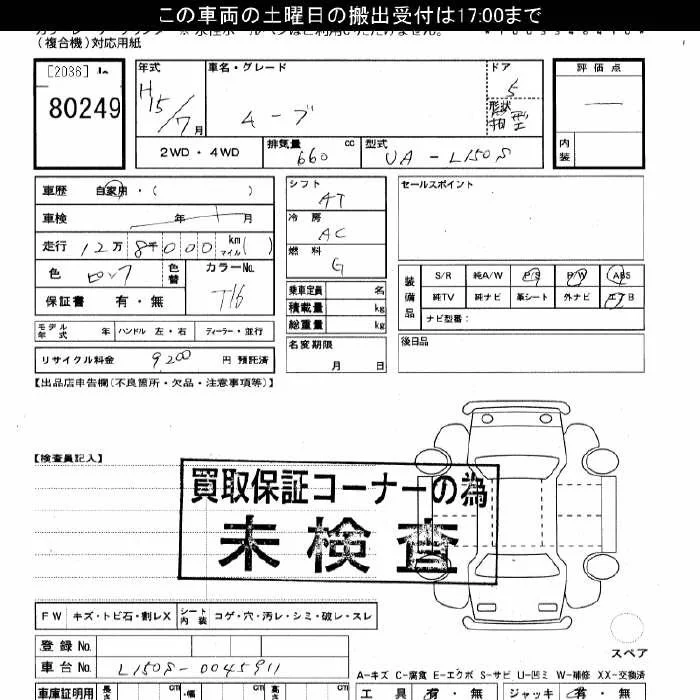 この車両の土曜日の搬出受付は17:00まで
(複合機)対応用紙
[2036]
80249
年式 H15/7月
車名・グレード ムーブ
ドア 5
形状
評価点 —
内装
2WD・4WD
排気量 660 cc
型式 UA-L150S
車歴 自家用・( )
車検 年 月
走行 12万8千000 km マイル( )
色 ピンク 色替
カラーNo. T16
保証書 有・無
シフト AT
冷房 AC
燃料 G
乗車定員 名
積載量 kg
総重量 kg
名変期限 月 日
セールスポイント
装備品
S/R 純A/W P/S P/W ABS
純TV 純ナビ 革シート 外ナビ エアB
ナビ型番:
後日品
モデル年式 年 ハンドル 左・右 ディーラー・並行
リサイクル料金 9200 円 預託済
【出品店申告欄(不良箇所・欠品・注意事項等)】
【検査員記入】
買取保証コーナーの為
未検査
FW キズ・トビ石・割レX シート内装 コゲ・穴・汚レ・シミ・破レ・スレ
スペア
登録No.
車台No. L150S-0045911
A-キズ C-腐食 E-エクボ S-サビ U-凹ミ W-補修 XX-交換済
車庫証明用 長さ cm ・幅 cm 高さ cm
工具 有・無 ジャッキ 有・無